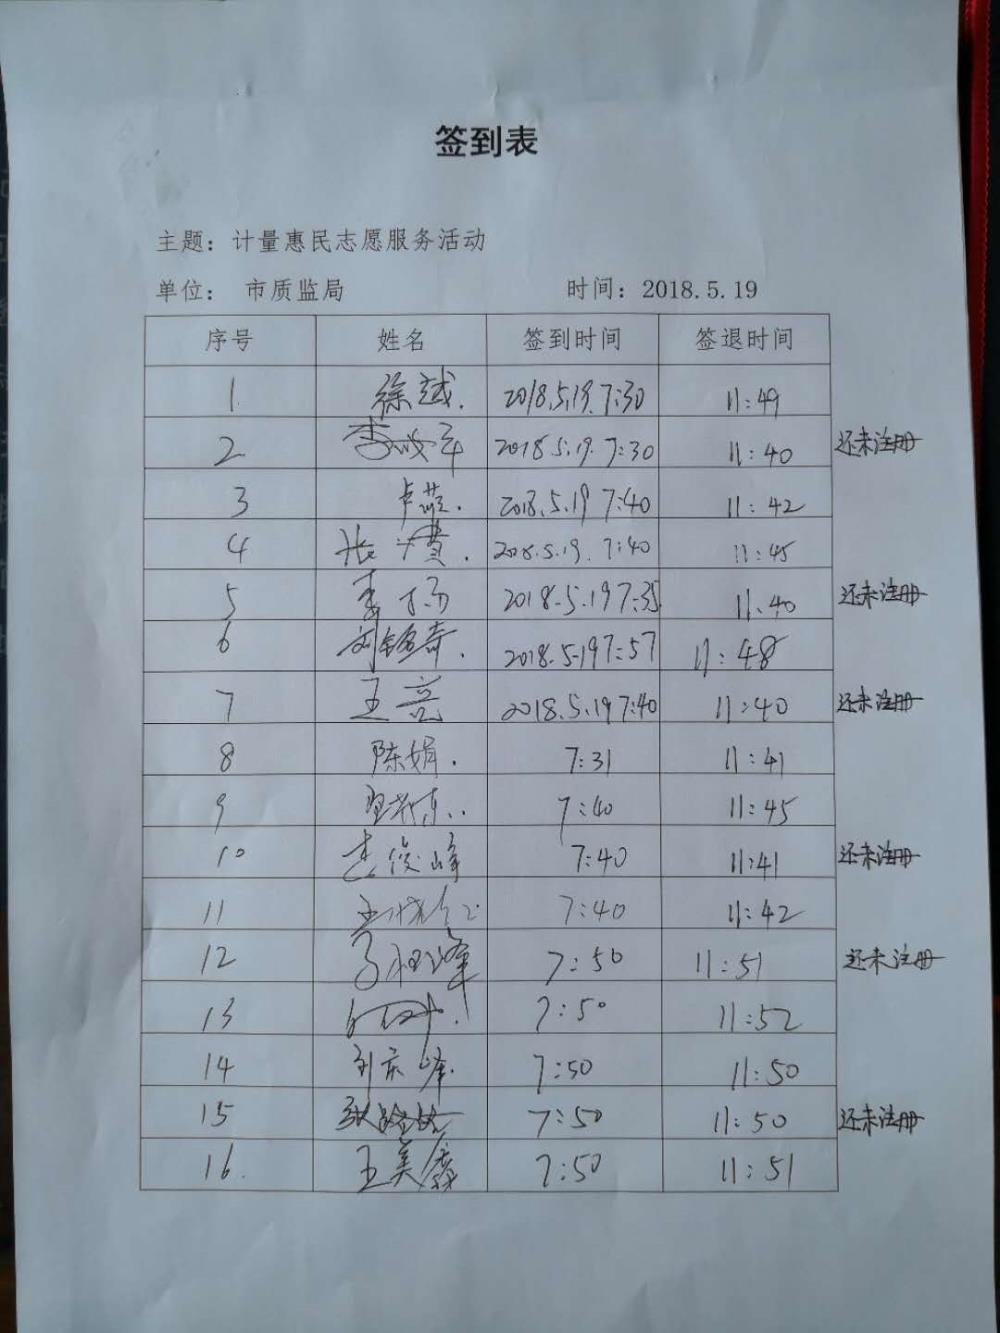 签到表
主题：计量惠民志愿服务活动
单位： 市质监局 时间：2018.5.19
序号 姓名 签到时间 签退时间
1 徐斌. 2018.5.19.7:30 11:49
2 2018.5.19.7:30 11:40 还未注册
3 卢燕. 2018.5.19 7:40 11:42
4 张 2018.5.19.7:40 11:45
5 李杨 2018.5.19 7:35 11.40 还未注册
6 刘铭奇. 2018.5.19 7:57 11:48
7 王亮 2018.5.19 7:40 11:40 还未注册
8 陈娟. 7:31 11:41
9 7:40 11:45
10 李俊峰 7:40 11:41 还未注册
11 7:40 11:42
12 7:50 11:51 还未注册
13 7:50 11:52
14 刘庆峰. 7:50 11:50
15 7:50 11:50 还未注册
16. 王美 7:50 11:51